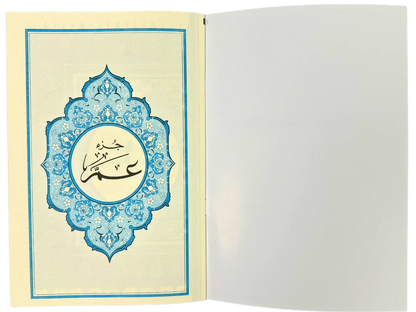 جزء
عم